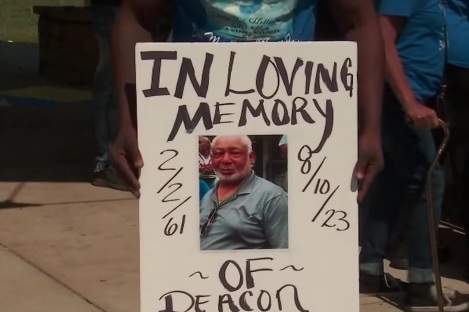 IN LOVING
MEMORY
2/2/61
8/10/23
~ OF ~
DEACON